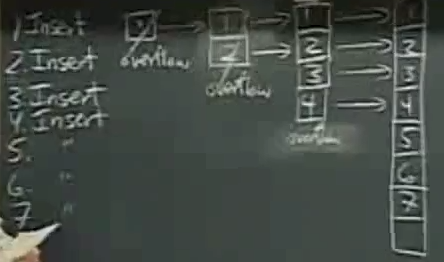 1. Insert
2. Insert
3. Insert
4. Insert
5. "
6. "
7 "
overflow
1
2
overflow
1
2
3
4
overflow
1
2
3
4
5
6
7